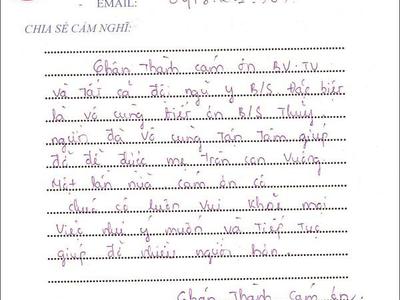 - EMAIL:
CHIA SẺ CẢM NGHĨ:
Chân Thành cám ơn BV. TV
và Tất cả đội ngũ y B/S Đặc biệt
là vô cùng biết ơn B/S Thủy
người đã vô cùng Tận Tâm giúp
đỡ để được mẹ Tròn con Vuông
Một lần nữa cám ơn cô
chúc cô luôn vui khỏe mọi
Việc như ý muốn và Tiếp Tục
giúp đỡ nhiều người hơn.
Chân Thành cám ơn.